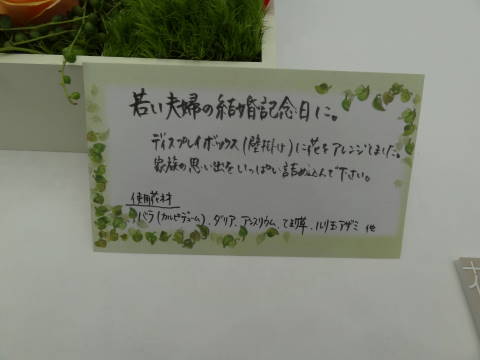 若い夫婦の結婚記念日に。
ディスプレイボックス(壁掛け)に花をアレンジしました。
家族の思い出をいっぱい詰め込んで下さい。
使用花材
バラ(カルピデューム)、ダリア、アンスリウム、てまり草、ルリ玉アザミ 他